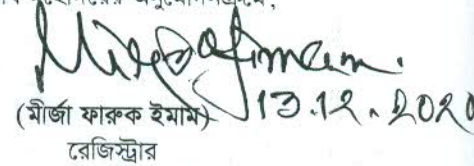 অনুমোদনক্রমে,
13.12.2020
(মীর্জা ফারুক ইমাম)
রেজিস্ট্রার